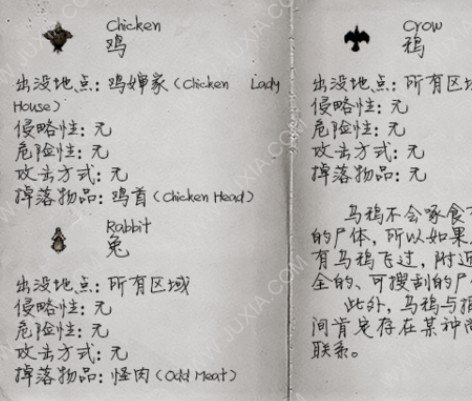 Chicken
鸡
出没地点：鸡婶家（Chicken Lady
House）
侵略性：无
危险性：无
攻击方式：无
掉落物品：鸡首（Chicken Head）
Rabbit
兔
出没地点：所有区域
侵略性：无
危险性：无
攻击方式：无
掉落物品：怪肉（Odd Meat）
Crow
鸦
出没地点：所有区
侵略性：无
危险性：无
攻击方式：无
掉落物品：无
乌鸦不会啄食
的尸体，所以如果
有乌鸦飞过，附近
全的、可搜刮的尸
此外，乌鸦与
间肯定存在某种
联系。
WWW.JUXIA.COM